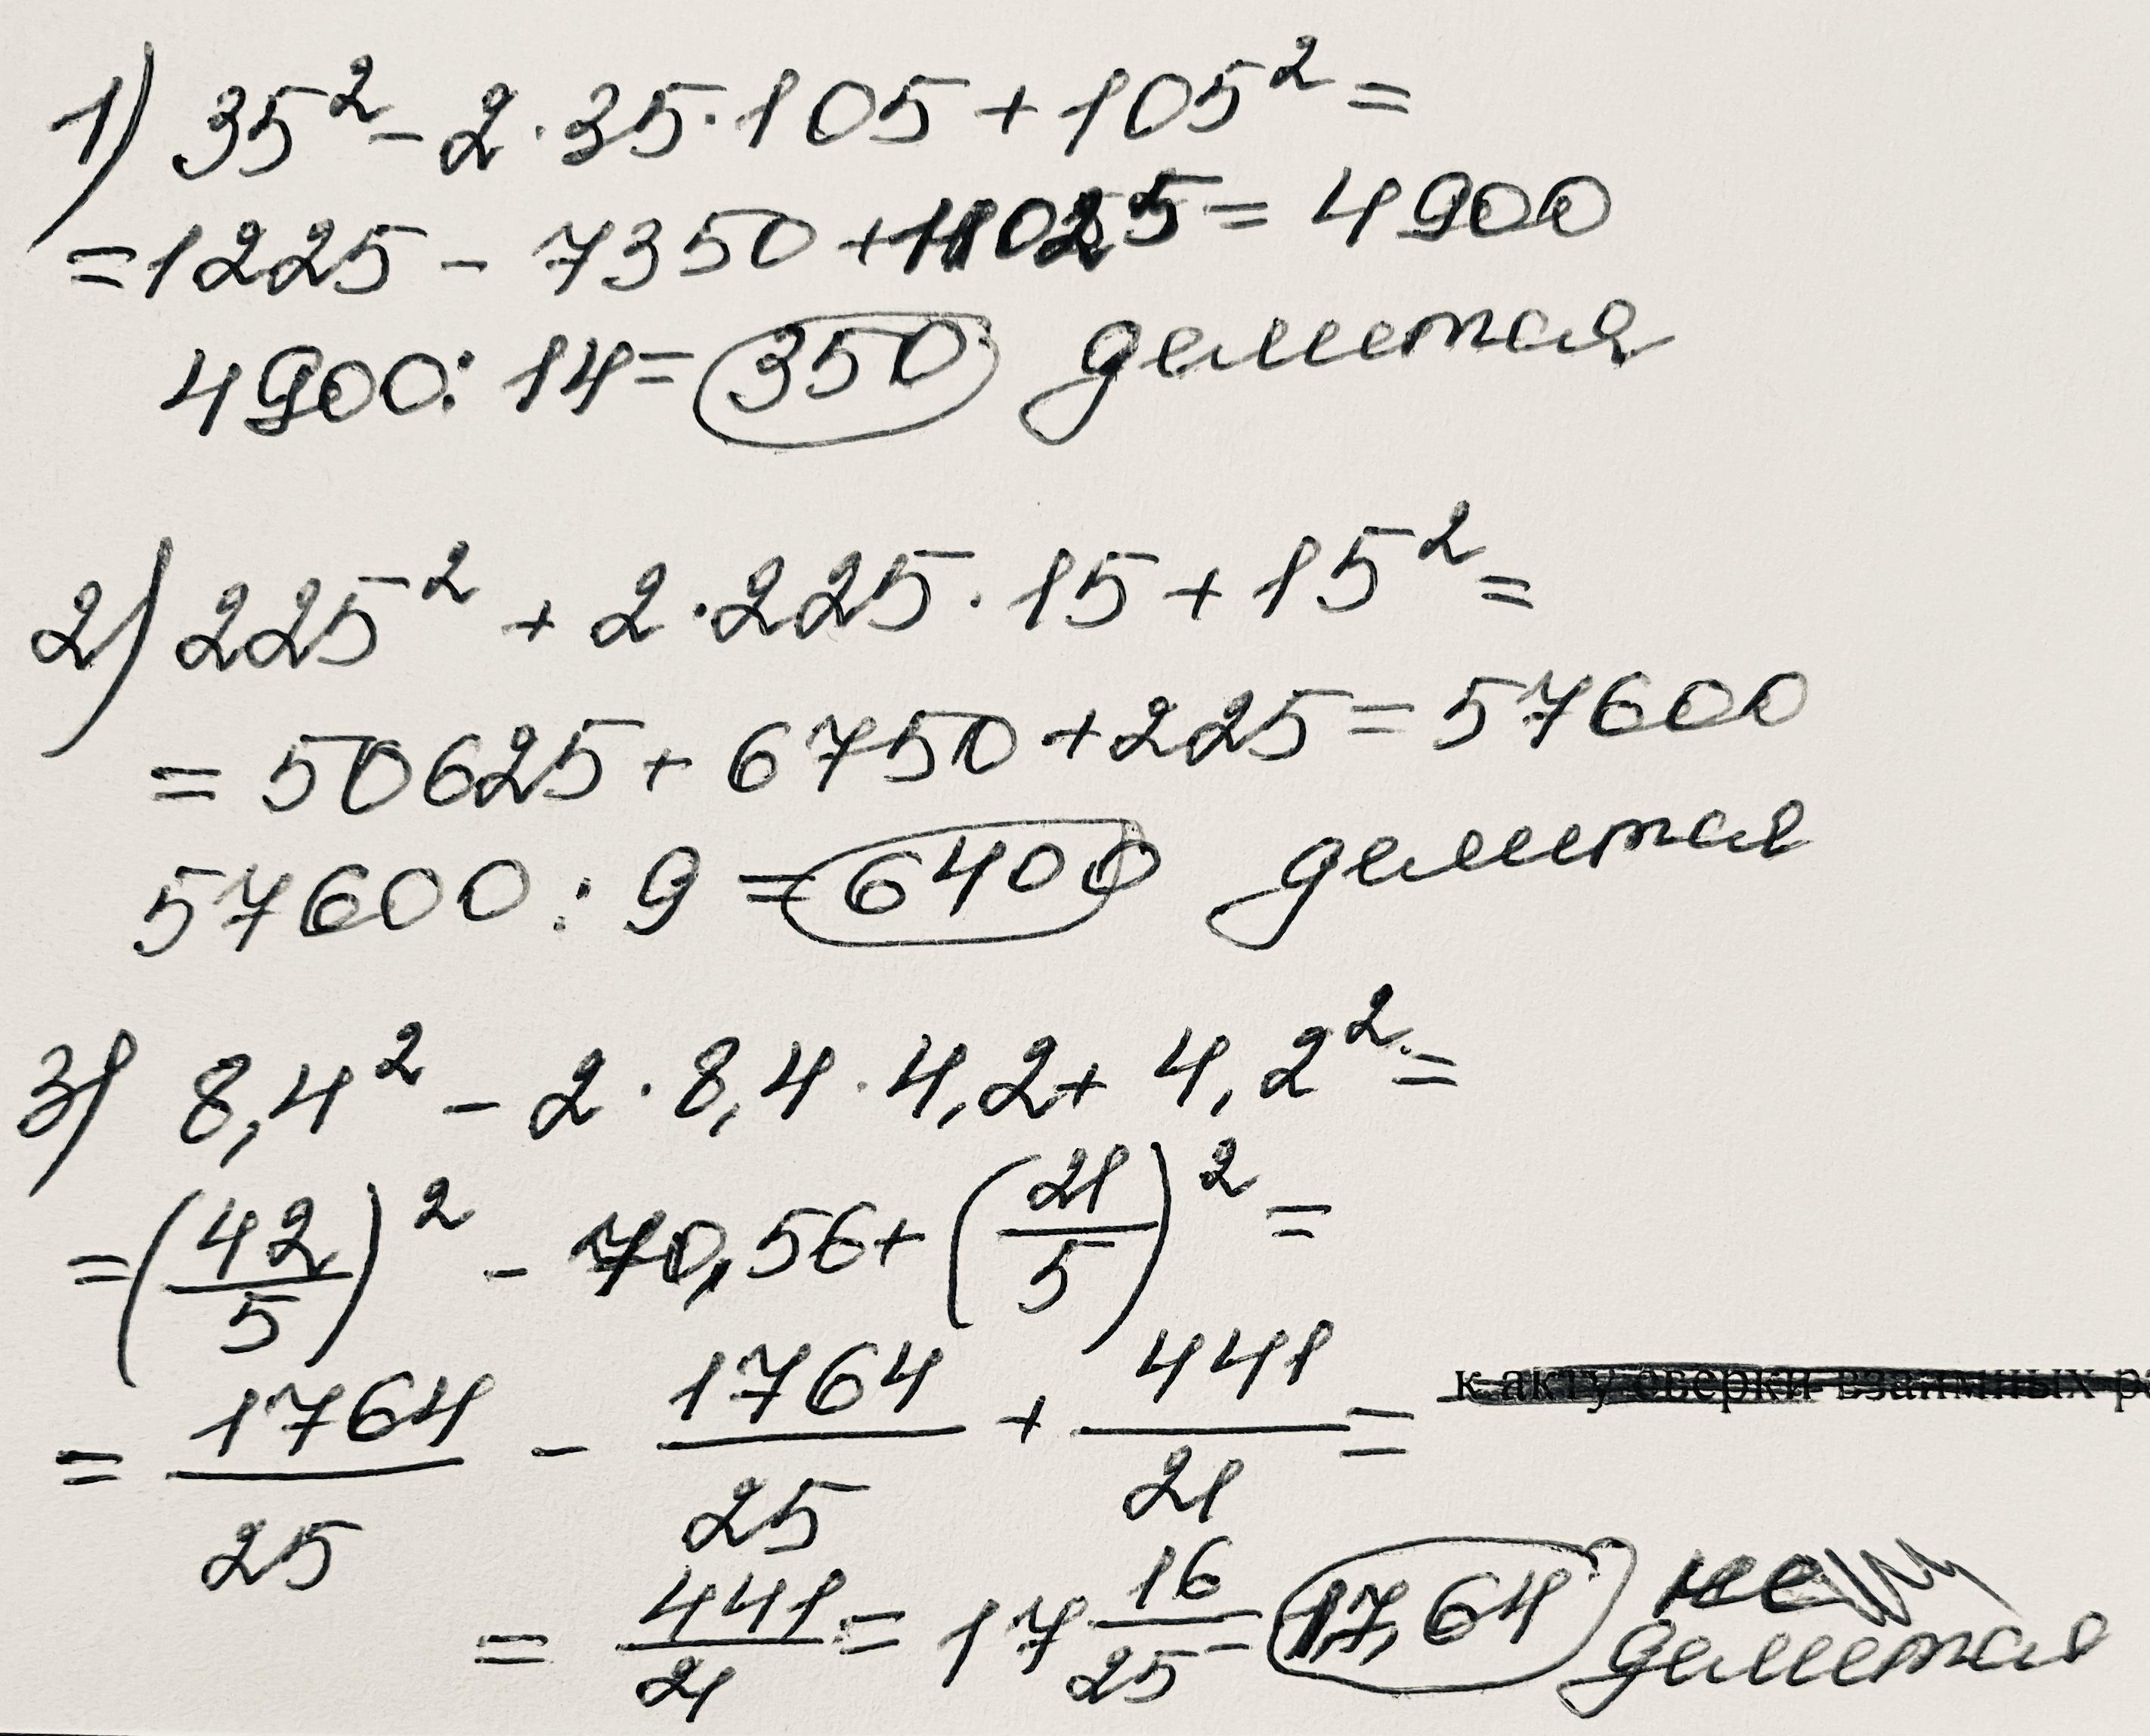 1) 35² - 2 · 35 · 105 + 105² =
= 1225 - 7350 + 11025 = 4900
4900 : 14 = 350 делится
2) 225² + 2 · 225 · 15 + 15² =
= 50625 + 6750 + 225 = 57600
57600 : 9 = 6400 делится
3) 8,4² - 2 · 8,4 · 4,2 + 4,2² =
= (42/5)² - 70,56 + (21/5)² =
= 1764/25 - 1764/25 + 441/21 =
к акту сверки взаимных
= 441/21 = 17 16/25 = 17,64 не
делится